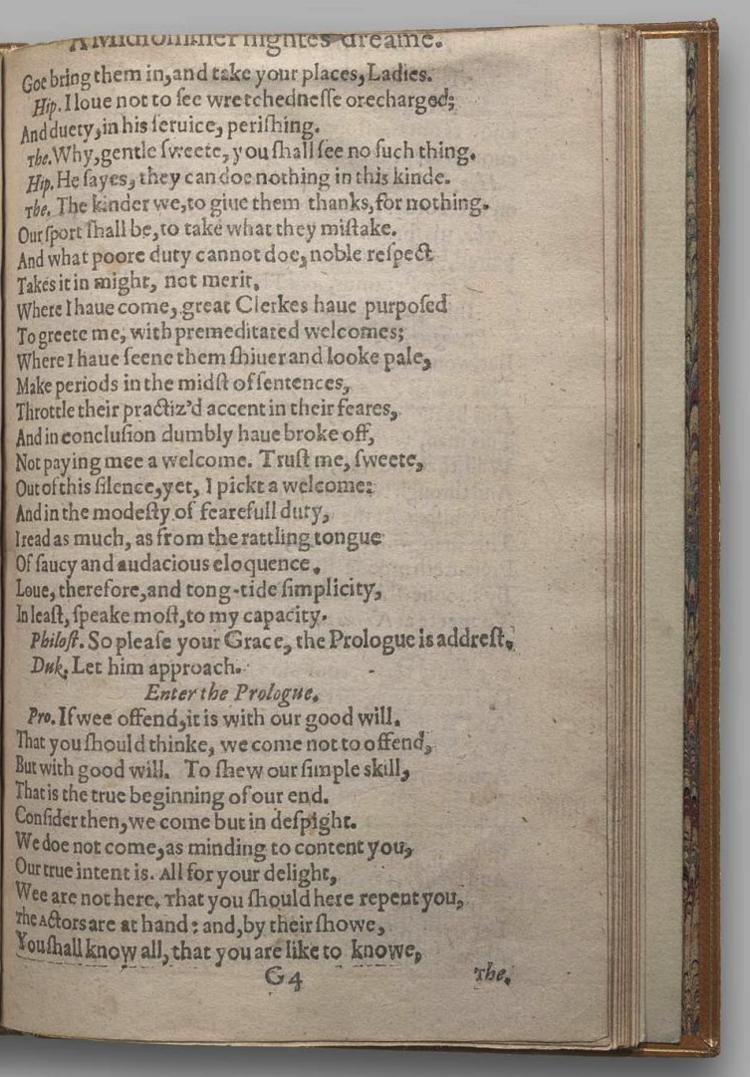 A Midsommer nightes dreame.
Goe bring them in, and take your places, Ladies.
Hip. I loue not to ſee wretchedneſſe orecharged;
And duety, in his ſeruice, periſhing.
The. Why, gentle ſweete, you ſhall ſee no ſuch thing.
Hip. He ſayes, they can doe nothing in this kinde.
The. The kinder we, to giue them thanks, for nothing.
Our ſport ſhall be, to take what they miſtake.
And what poore duty cannot doe, noble reſpect
Takes it in might, not merit.
Where I haue come, great Clerkes haue purpoſed
To greete me, with premeditated welcomes;
Where I haue ſeene them ſhiuer and looke pale,
Make periods in the midſt of ſentences,
Throttle their practiz'd accent in their feares,
And in concluſion dumbly haue broke off,
Not paying mee a welcome. Truſt me, ſweete,
Out of this ſilence, yet, I pickt a welcome:
And in the modeſty of fearefull duty,
I read as much, as from the rattling tongue
Of ſaucy and audacious eloquence.
Loue, therefore, and tong-tide ſimplicity,
In leaſt, ſpeake moſt, to my capacity.
Philoſt. So pleaſe your Grace, the Prologue is addreſt.
Duk. Let him approach.
Enter the Prologue.
Pro. If wee offend, it is with our good will.
That you ſhould thinke, we come not to offend,
But with good will. To ſhew our ſimple skill,
That is the true beginning of our end.
Conſider then, we come but in deſpight.
We doe not come, as minding to content you,
Our true intent is. All for your delight,
Wee are not here. That you ſhould here repent you,
The Actors are at hand: and, by their ſhowe,
You ſhall know all, that you are like to knowe,
G4
The.